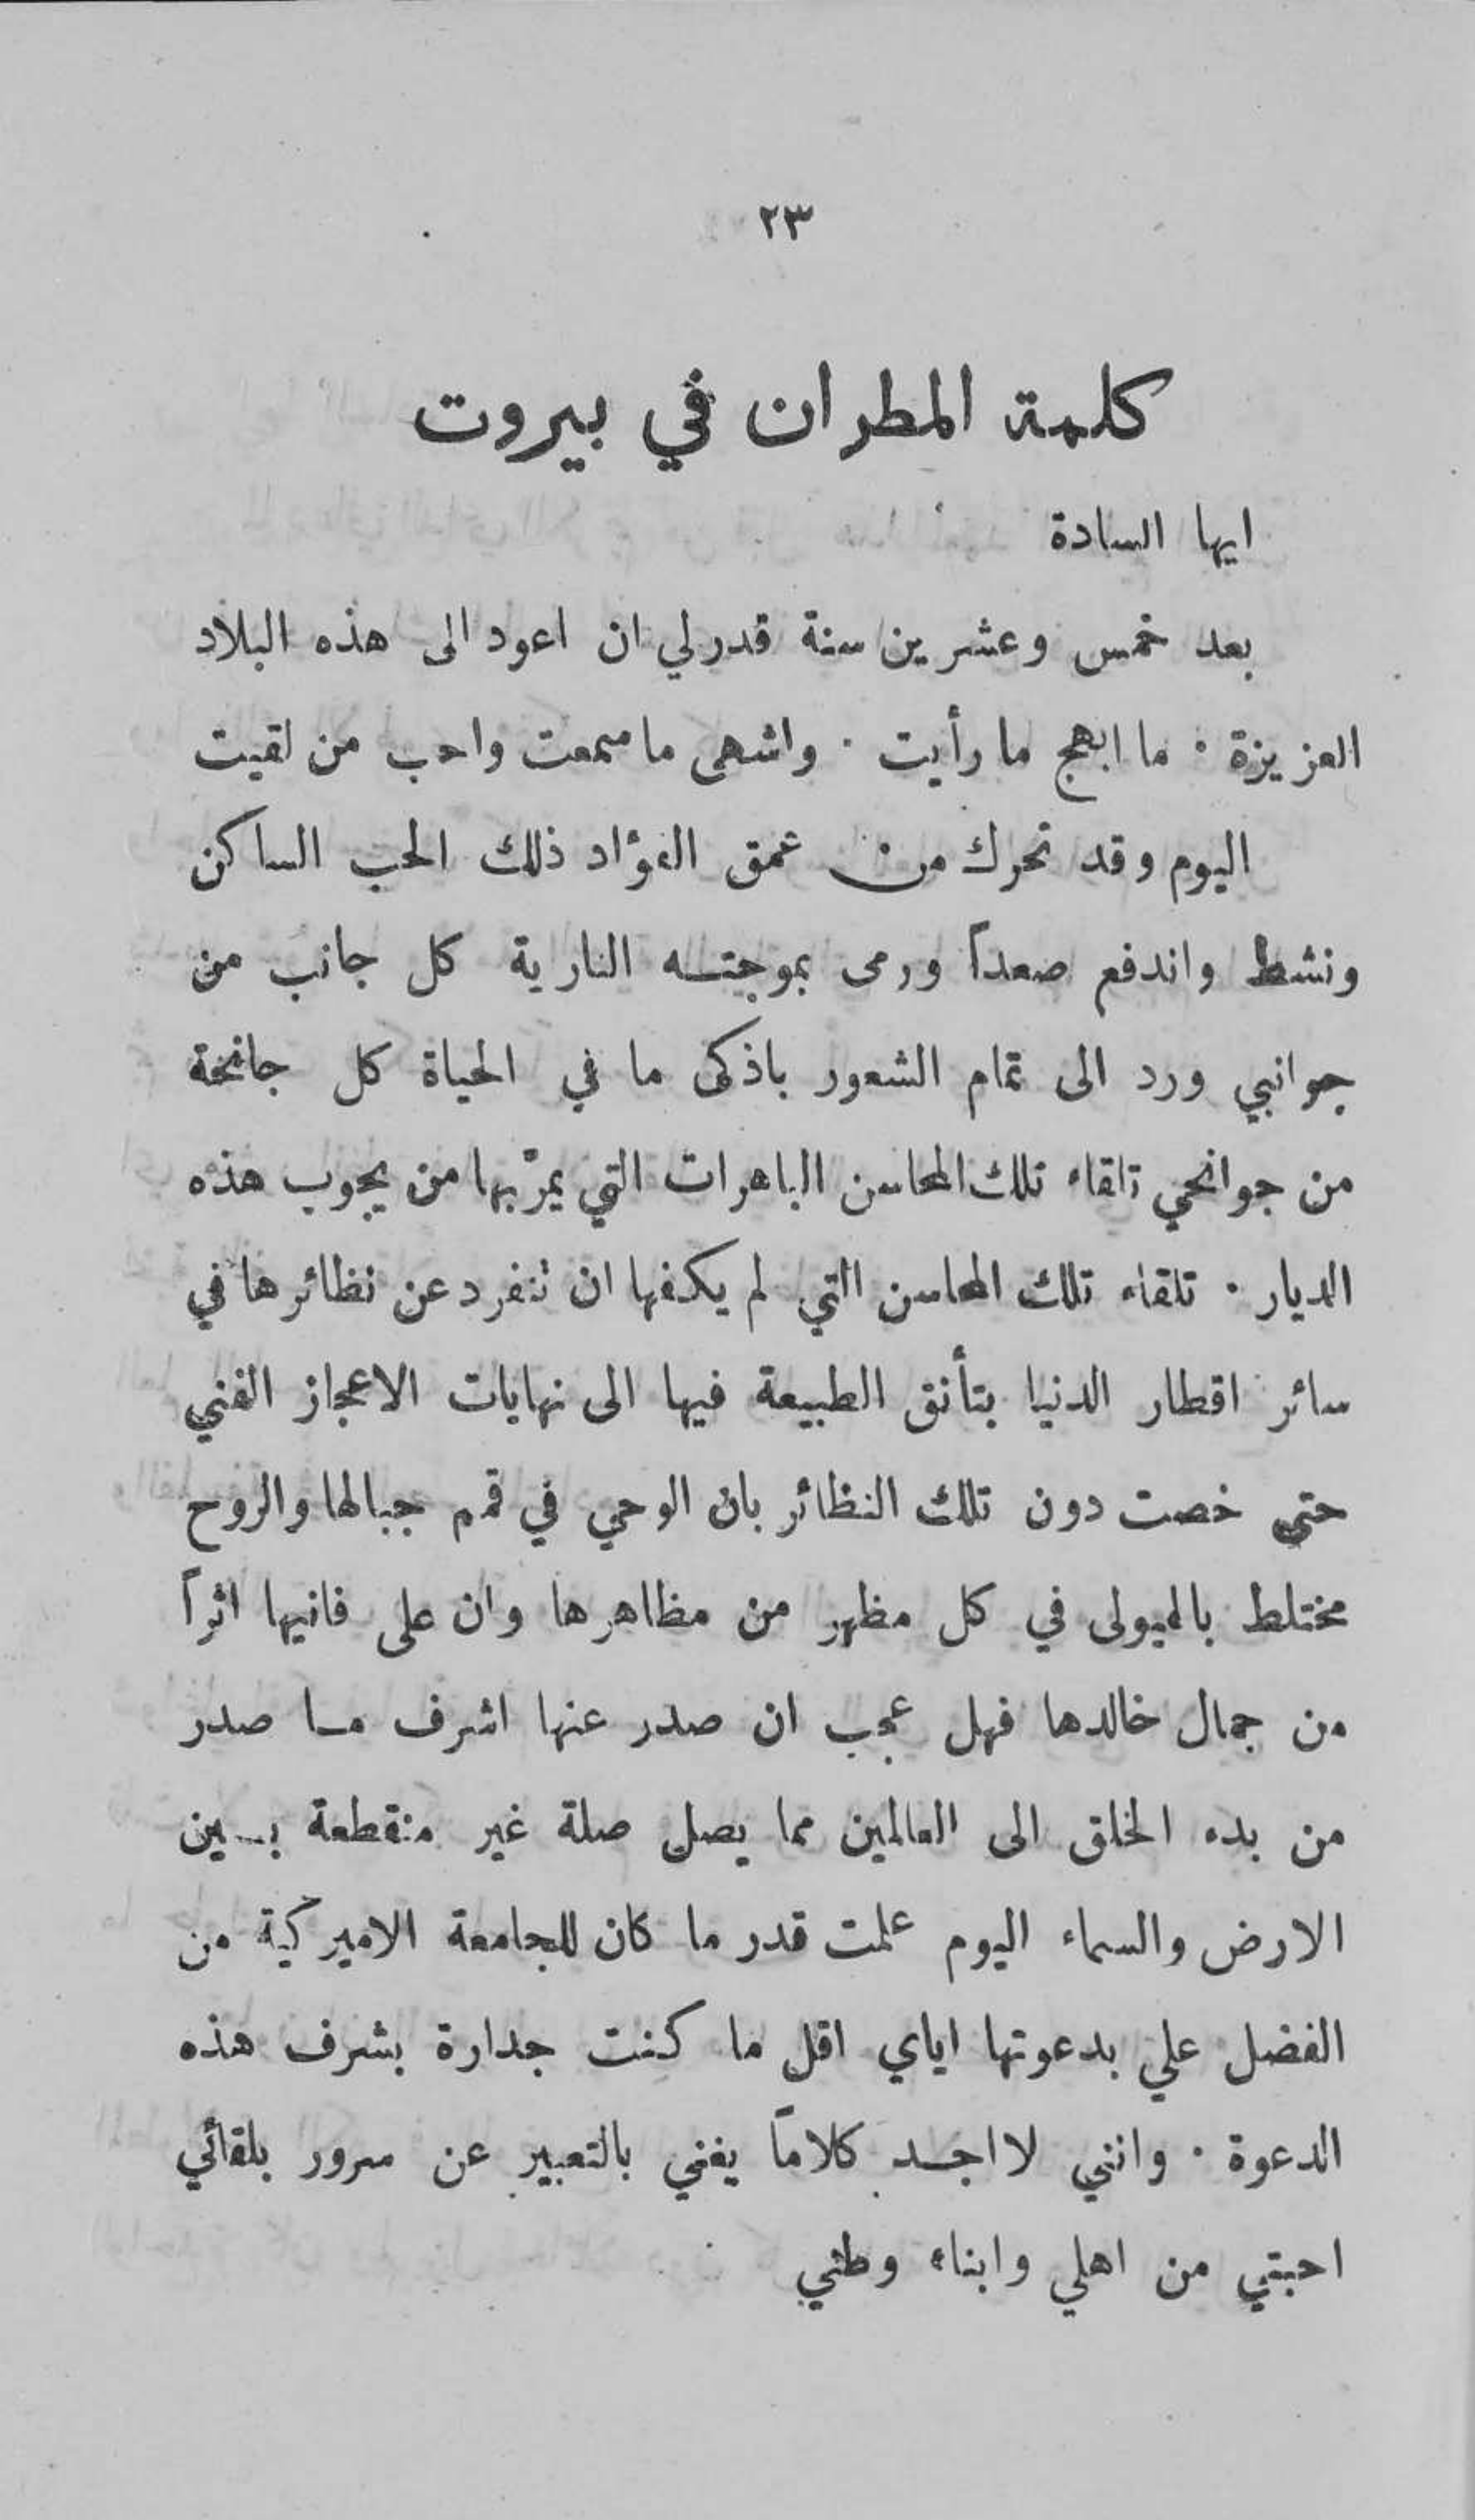 ٢٣
كلمة المطران في بيروت
ايها السادة
بعد خمس وعشرين سنة قدر لي ان اعود الى هذه البلاد
العزيزة . ما ابهج ما رأيت . واشهى ما سمعت واحب من لقيت
اليوم وقد تحرك من عمق الفؤاد ذلك الحب الساكن
ونشط واندفع صعداً ورمى بموجته النارية كل جانب من
جوانبي ورد الى تمام الشعور باذكى ما في الحياة كل جانحة
من جوانحي تلقاء تلك المحاسن الباهرات التي يمرّ بها من يجوب هذه
الديار . تلقاء تلك المحاسن التي لم يكفها ان تنفرد عن نظائرها في
سائر اقطار الدنيا بتأنق الطبيعة فيها الى نهايات الاعجاز الفني
حتى خصت دون تلك النظائر بان الوحي في قمم جبالها والروح
مختلط بالهيولى في كل مظهر من مظاهرها وان على فانيها اثراً
من جمال خالدها فهل عجب ان صدر عنها اشرف ما صدر
من بدء الخلق الى العالمين مما يصل صلة غير منقطعة بين
الارض والسماء اليوم علمت قدر ما كان للجامعة الاميركية من
الفضل علي بدعوتها اياي اقل ما كنت جدارة بشرف هذه
الدعوة . وانني لا اجد كلاماً يفني بالتعبير عن سرور بلقائي
احبتي من اهلي وابناء وطني